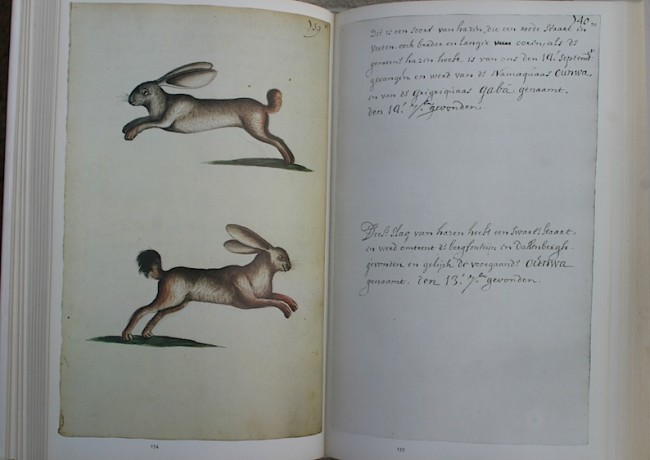 739
740
Dit is een soort van hazen, die een rode staart en
voeten, ook breder en langer ooren, als de
gemeene hazen heeft. is van ons den 14. septemb
gevangen en werd van de Namaquaas Ounwa
en van de Grigriquaas gabā genaamt.
den 14.e 7.br gevonden
Dese slag van hazen heeft een swarte staart
en werd omtrent de bergfontein en Dassenbergh
gevonden en gelijk de voorgaande Ounwa
genaamt. den 13.e 7.ber gevonden.
154
155